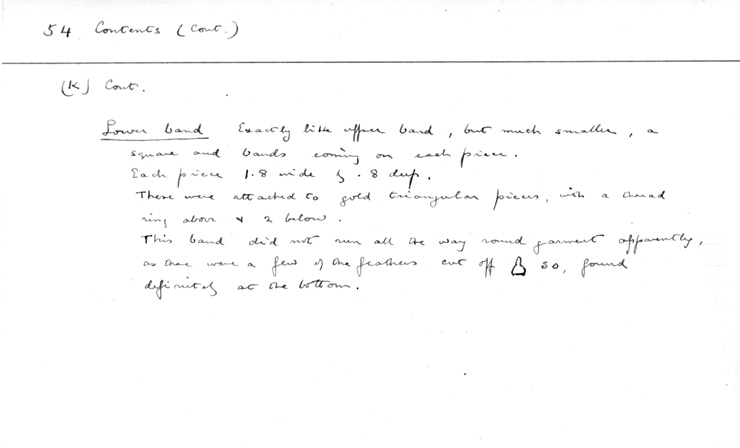 54 Contents (Cont.)
(K) Cont.
Lower band Exactly like upper band, but much smaller, a
square and bands coming on each piece.
Each piece 1.8 wide & .8 deep.
These were attached to gold triangular pieces, with a thread
ring above & 2 below.
This band did not run all the way round garment apparently,
as there were a few of the feathers cut off so, found
definitely at the bottom.